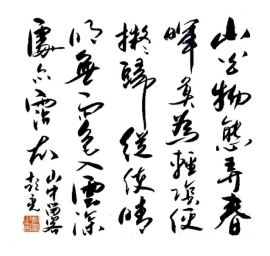 山光物態弄春
暉莫為輕陰便
擬歸縱使晴
明無雨色入雲深
處亦霑衣
山中留客